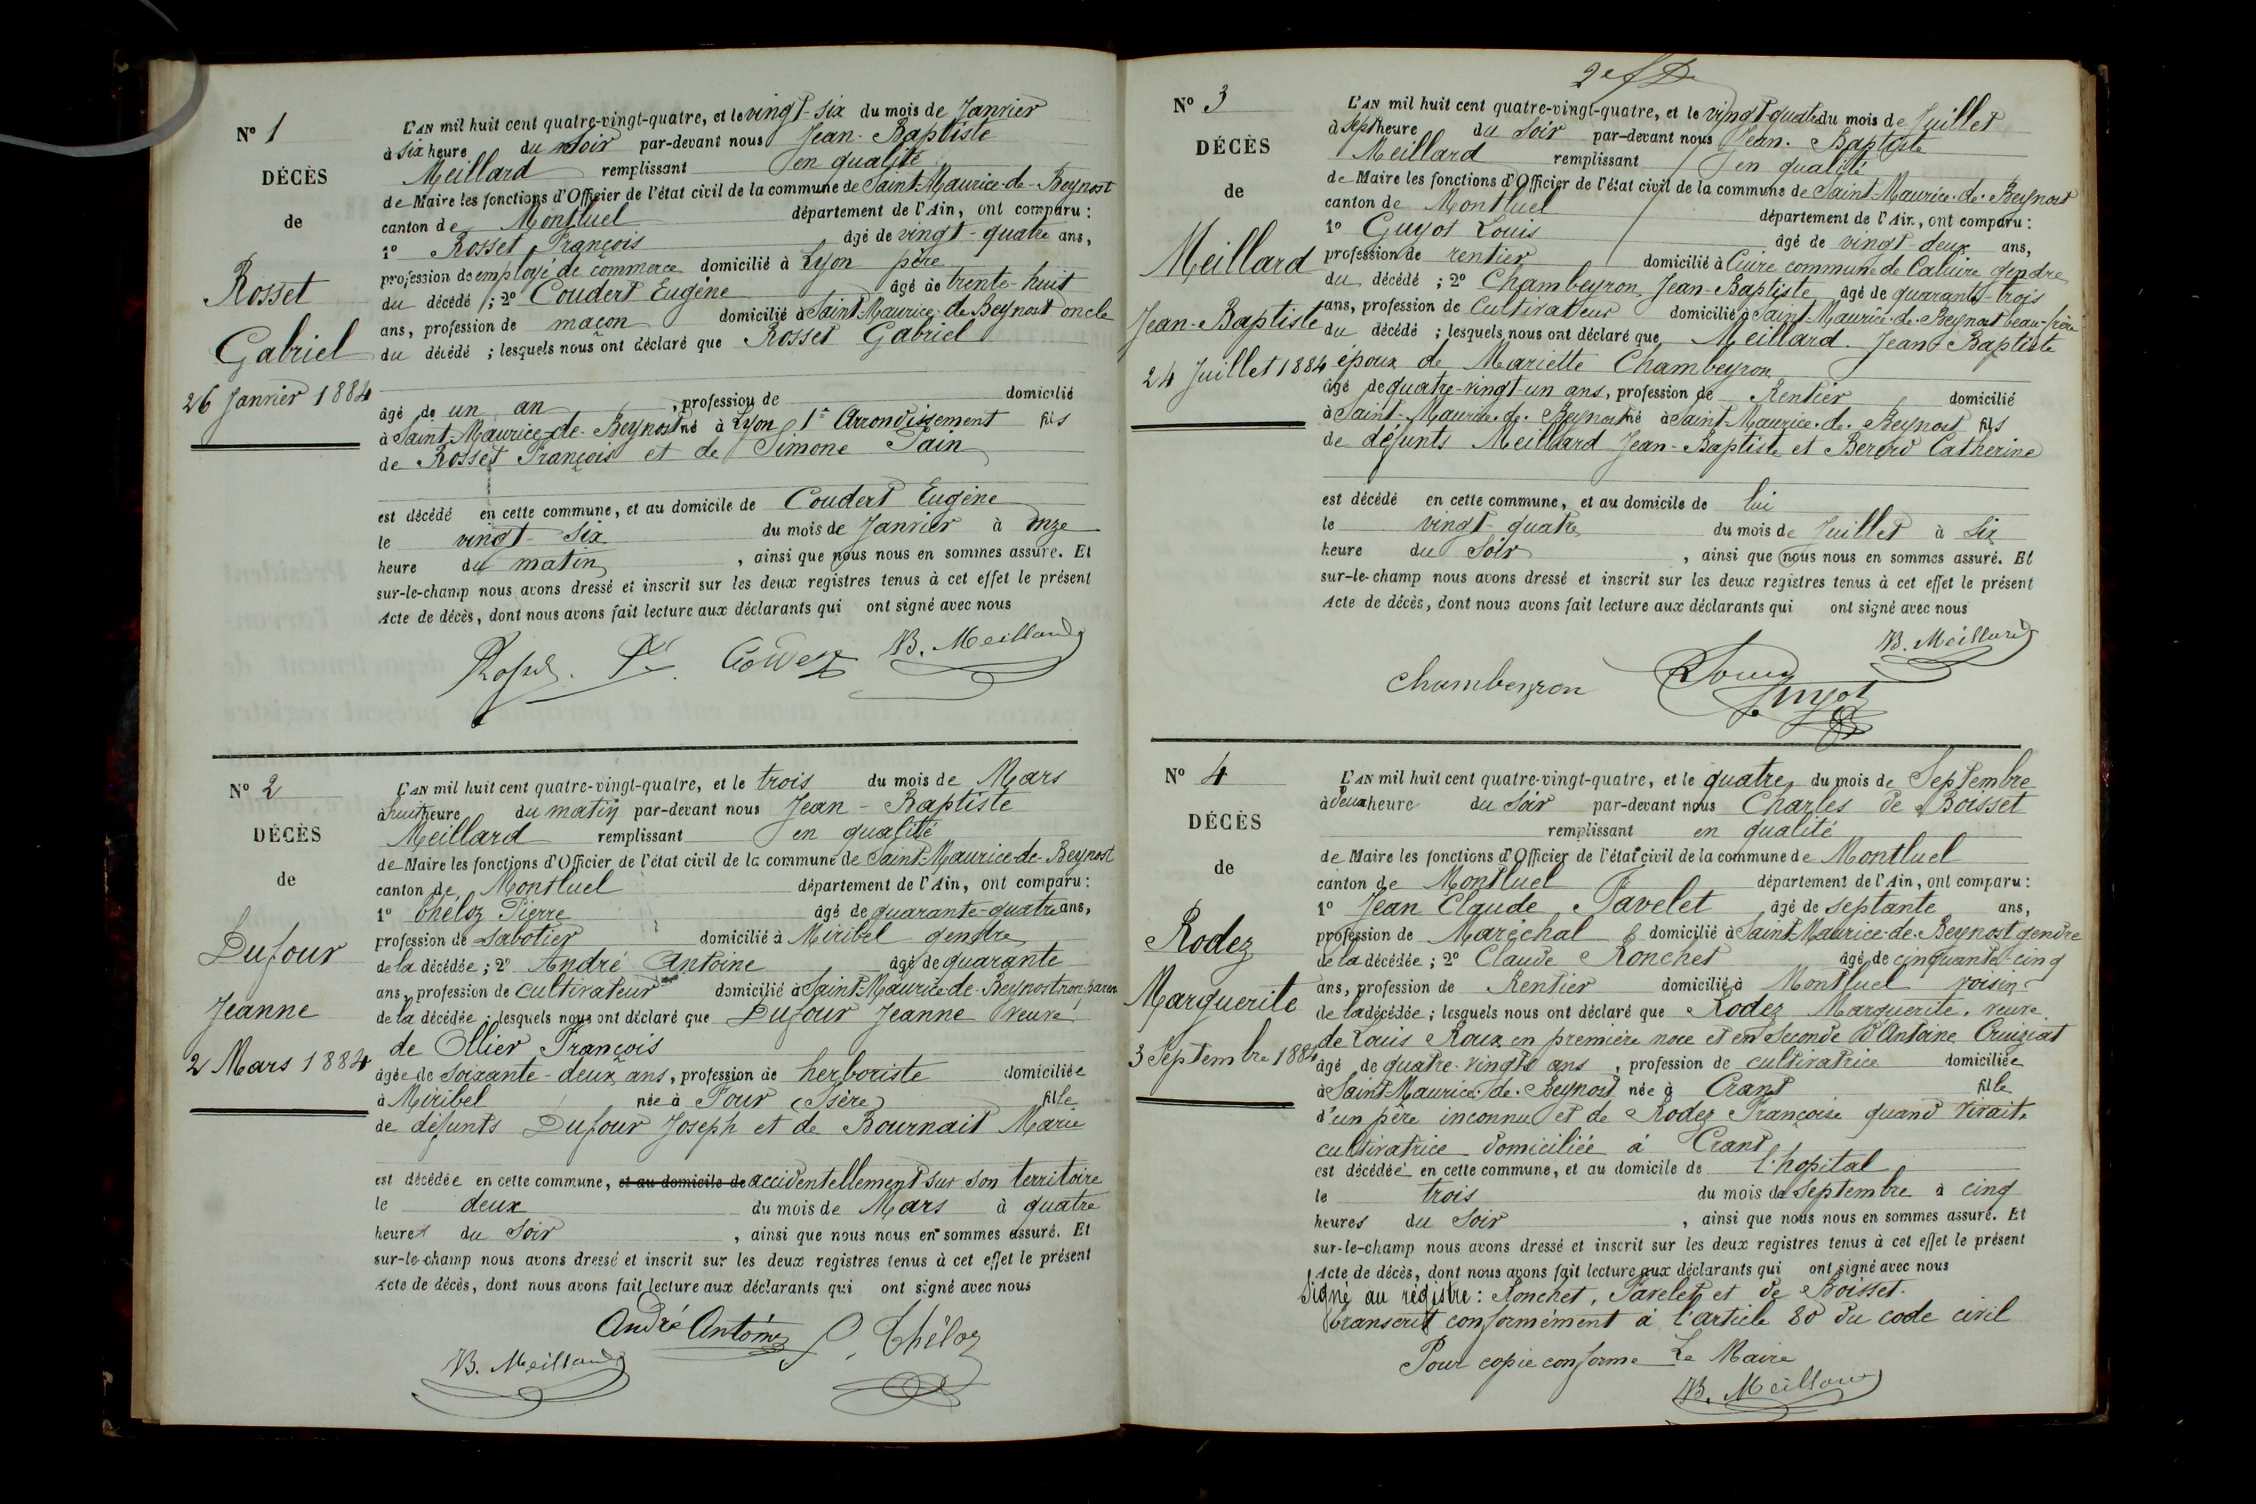 N° 1
DÉCÈS
de
Rosset
Gabriel
26 Janvier 1884
L'AN mil huit cent quatre-vingt-quatre, et le vingt-six du mois de Janvier
à six heure du soir par-devant nous Jean-Baptiste
Meillard remplissant en qualité
de Maire les fonctions d'Officier de l'état civil de la commune de Saint-Maurice-de-Beynost
canton de Montluel département de l'Ain, ont comparu :
1° Rosset François âgé de vingt-quatre ans,
profession de employé de commerce domicilié à Lyon père
du décédé ; 2° Coudert Eugène âgé de trente-huit
ans, profession de maçon domicilié à Saint-Maurice-de-Beynost oncle
du décédé ; lesquels nous ont déclaré que Rosset Gabriel
âgé de un an , profession de domicilié
à Saint-Maurice-de-Beynost né à Lyon 1er Arrondissement fils
de Rosset François et de Simone Pain
est décédé en cette commune, et au domicile de Coudert Eugène
le vingt-six du mois de Janvier à onze
heure du matin , ainsi que nous nous en sommes assuré. Et
sur-le-champ nous avons dressé et inscrit sur les deux registres tenus à cet effet le présent
Acte de décès, dont nous avons fait lecture aux déclarants qui ont signé avec nous
B. Meillard
N° 2
DÉCÈS
de
Dufour
Jeanne
2 Mars 1884
L'AN mil huit cent quatre-vingt-quatre, et le trois du mois de Mars
à huit heure du matin par-devant nous Jean-Baptiste
Meillard remplissant en qualité
de Maire les fonctions d'Officier de l'état civil de la commune de Saint-Maurice-de-Beynost
canton de Montluel département de l'Ain, ont comparu :
1° Théloz Pierre âgé de quarante-quatre ans,
profession de sabotier domicilié à Miribel gendre
de la décédée ; 2° André Antoine âgé de quarante
ans, profession de cultivateur domicilié à Saint-Maurice-de-Beynost non parent
de la décédée ; lesquels nous ont déclaré que Dufour Jeanne veuve
de Ollier François
âgée de soixante-deux ans, profession de herboriste domiciliée
à Miribel née à Tour (Isère) fille
de défunts Dufour Joseph et de Bournait Marie
est décédée en cette commune, et au domicile de accidentellement sur son territoire
le deux du mois de Mars à quatre
heures du soir , ainsi que nous nous en sommes assuré. Et
sur-le-champ nous avons dressé et inscrit sur les deux registres tenus à cet effet le présent
Acte de décès, dont nous avons fait lecture aux déclarants qui ont signé avec nous
André Antoine P. Théloz
B. Meillard
N° 3
DÉCÈS
de
Meillard
Jean-Baptiste
24 Juillet 1884
L'AN mil huit cent quatre-vingt-quatre, et le vingt-quatre du mois de Juillet
à sept heure du soir par-devant nous Jean-Baptiste
Meillard remplissant en qualité
de Maire les fonctions d'Officier de l'état civil de la commune de Saint-Maurice-de-Beynost
canton de Montluel département de l'Ain, ont comparu :
1° Guyot Louis âgé de vingt-deux ans,
profession de rentier domicilié à Cuire commune de Caluire gendre
du décédé ; 2° Chambeyron Jean-Baptiste âgé de quarante-trois
ans, profession de Cultivateur domicilié à Saint-Maurice-de-Beynost beau-frère
du décédé ; lesquels nous ont déclaré que Meillard Jean-Baptiste
époux de Mariette Chambeyron
âgé de quatre-vingt-un ans, profession de Rentier domicilié
à Saint-Maurice-de-Beynost né à Saint-Maurice-de-Beynost fils
de défunts Meillard Jean-Baptiste et Bererd Catherine
est décédé en cette commune, et au domicile de lui
le vingt-quatre du mois de Juillet à six
heure du soir , ainsi que nous nous en sommes assuré. Et
sur-le-champ nous avons dressé et inscrit sur les deux registres tenus à cet effet le présent
Acte de décès, dont nous avons fait lecture aux déclarants qui ont signé avec nous
B. Meillard
Chambeyron Louis Guyot
N° 4
DÉCÈS
de
Rodez
Marguerite
3 Septembre 1884
L'AN mil huit cent quatre-vingt-quatre, et le quatre du mois de Septembre
à deux heure du soir par-devant nous Charles de Boisset
remplissant en qualité
de Maire les fonctions d'Officier de l'état civil de la commune de Montluel
canton de Montluel département de l'Ain, ont comparu :
1° Jean Claude Favelet âgé de septante ans,
profession de Maréchal domicilié à Saint-Maurice-de-Beynost gendre
de la décédée ; 2° Claude Ronchet âgé de cinquante-cinq
ans, profession de Rentier domicilié à Montluel voisin
de la décédée ; lesquels nous ont déclaré que Rodez Marguerite, veuve
de Louis Roux en première noce et en seconde d'Antoine Cruiziat
âgé de quatre-vingts ans , profession de cultivatrice domiciliée
à Saint-Maurice-de-Beynost née à Crans fille
d'un père inconnu et de Rodez Françoise quand vivait
cultivatrice domiciliée à Crans
est décédée en cette commune, et au domicile de l'hopital
le trois du mois de Septembre à cinq
heures du soir , ainsi que nous nous en sommes assuré. Et
sur-le-champ nous avons dressé et inscrit sur les deux registres tenus à cet effet le présent
Acte de décès, dont nous avons fait lecture aux déclarants qui ont signé avec nous
Signé au régistre : Ronchet, Favelet et de Boisset.
Transcrit conformément à l'article 80 du code civil
Pour copie conforme Le Maire
B. Meillard